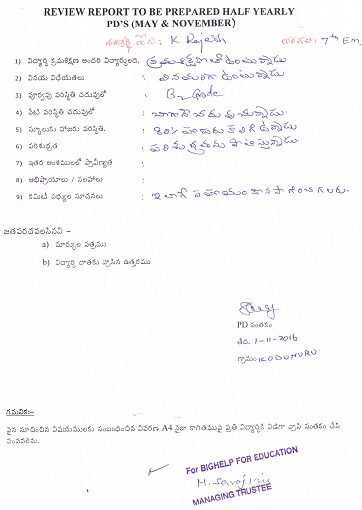 REVIEW REPORT TO BE PREPARED HALF YEARLY
PD'S (MAY & NOVEMBER)
పేరు: K Rajesh తరగతి: 7th Em.
1) విద్యార్థి క్రమశిక్షణ అందరి విద్యార్థులది. క్రమశిక్షణతో ఉంటున్నాడు
2) వినయ విధేయతలు : వినయంగా ఉంటున్నాడు
3) పూర్వపు పరిస్థితి చదువులో : B2 Grade
4) నేటి పరిస్థితి చదువులో : బాగానే చదువుతున్నాడు.
5) స్కూలుకు హాజరు పరిస్థితి. : 80% హాజరు కలిగి ఉన్నాడు
6) పరిశుభ్రత : పరిశుభ్రతను పాటిస్తున్నాడు.
7) ఇతర అంశములలో ప్రావీణ్యత :
8) అభిప్రాయాలు / సలహాలు :
9) కమిటీ సభ్యుల సూచనలు : ఇలాగే సహాయం కొనసాగించగలరు.
జతపరచవలసినవి -
a) మార్కుల పత్రము
b) విద్యార్థి దాతకు వ్రాసిన ఉత్తరము
PD సంతకం
తేది. 1-11-2016
గ్రామం: KODUMURU.
గమనిక:-
పైన సూచించిన విషయములకు సంబంధించిన వివరణ A4 సైజు కాగితముపై ప్రతి విద్యార్థికి విడిగా వ్రాసి సంతకం చేసి
పంపవలెను.
For BIGHELP FOR EDUCATION
M. Sarojini
MANAGING TRUSTEE